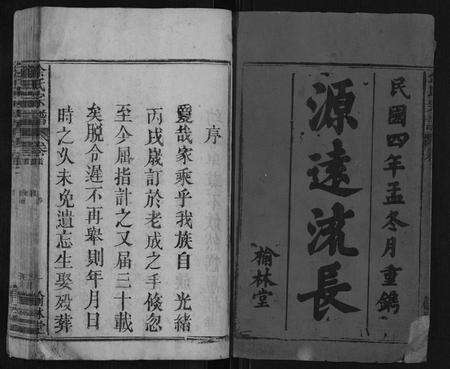 民國四年孟冬月重鐫
源遠流長
榆林堂
序
爰哉家乘乎我族自 光緒
丙戌歲訂於老成之手倐忽
至今屈指計之又屆三十載
矣脫令遲不再舉則年月日
時之久未免遺忘生娶殁葬